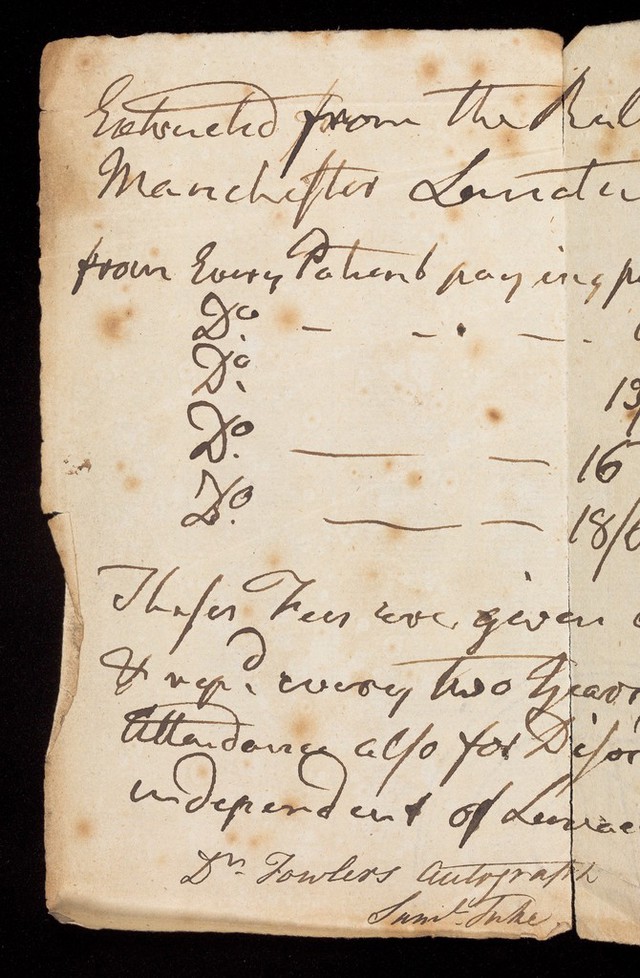 Extracted from the Rul
Manchester Lunati
from Every Patient paying p
Do. — — —
Do.
13
Do. — — 16
Do. — — 18/6
These Fees are given
& rep.d every two Years
Attendance also for Disor
independent of Lunac
Dr. Fowlers Autograph
Saml. Tuke